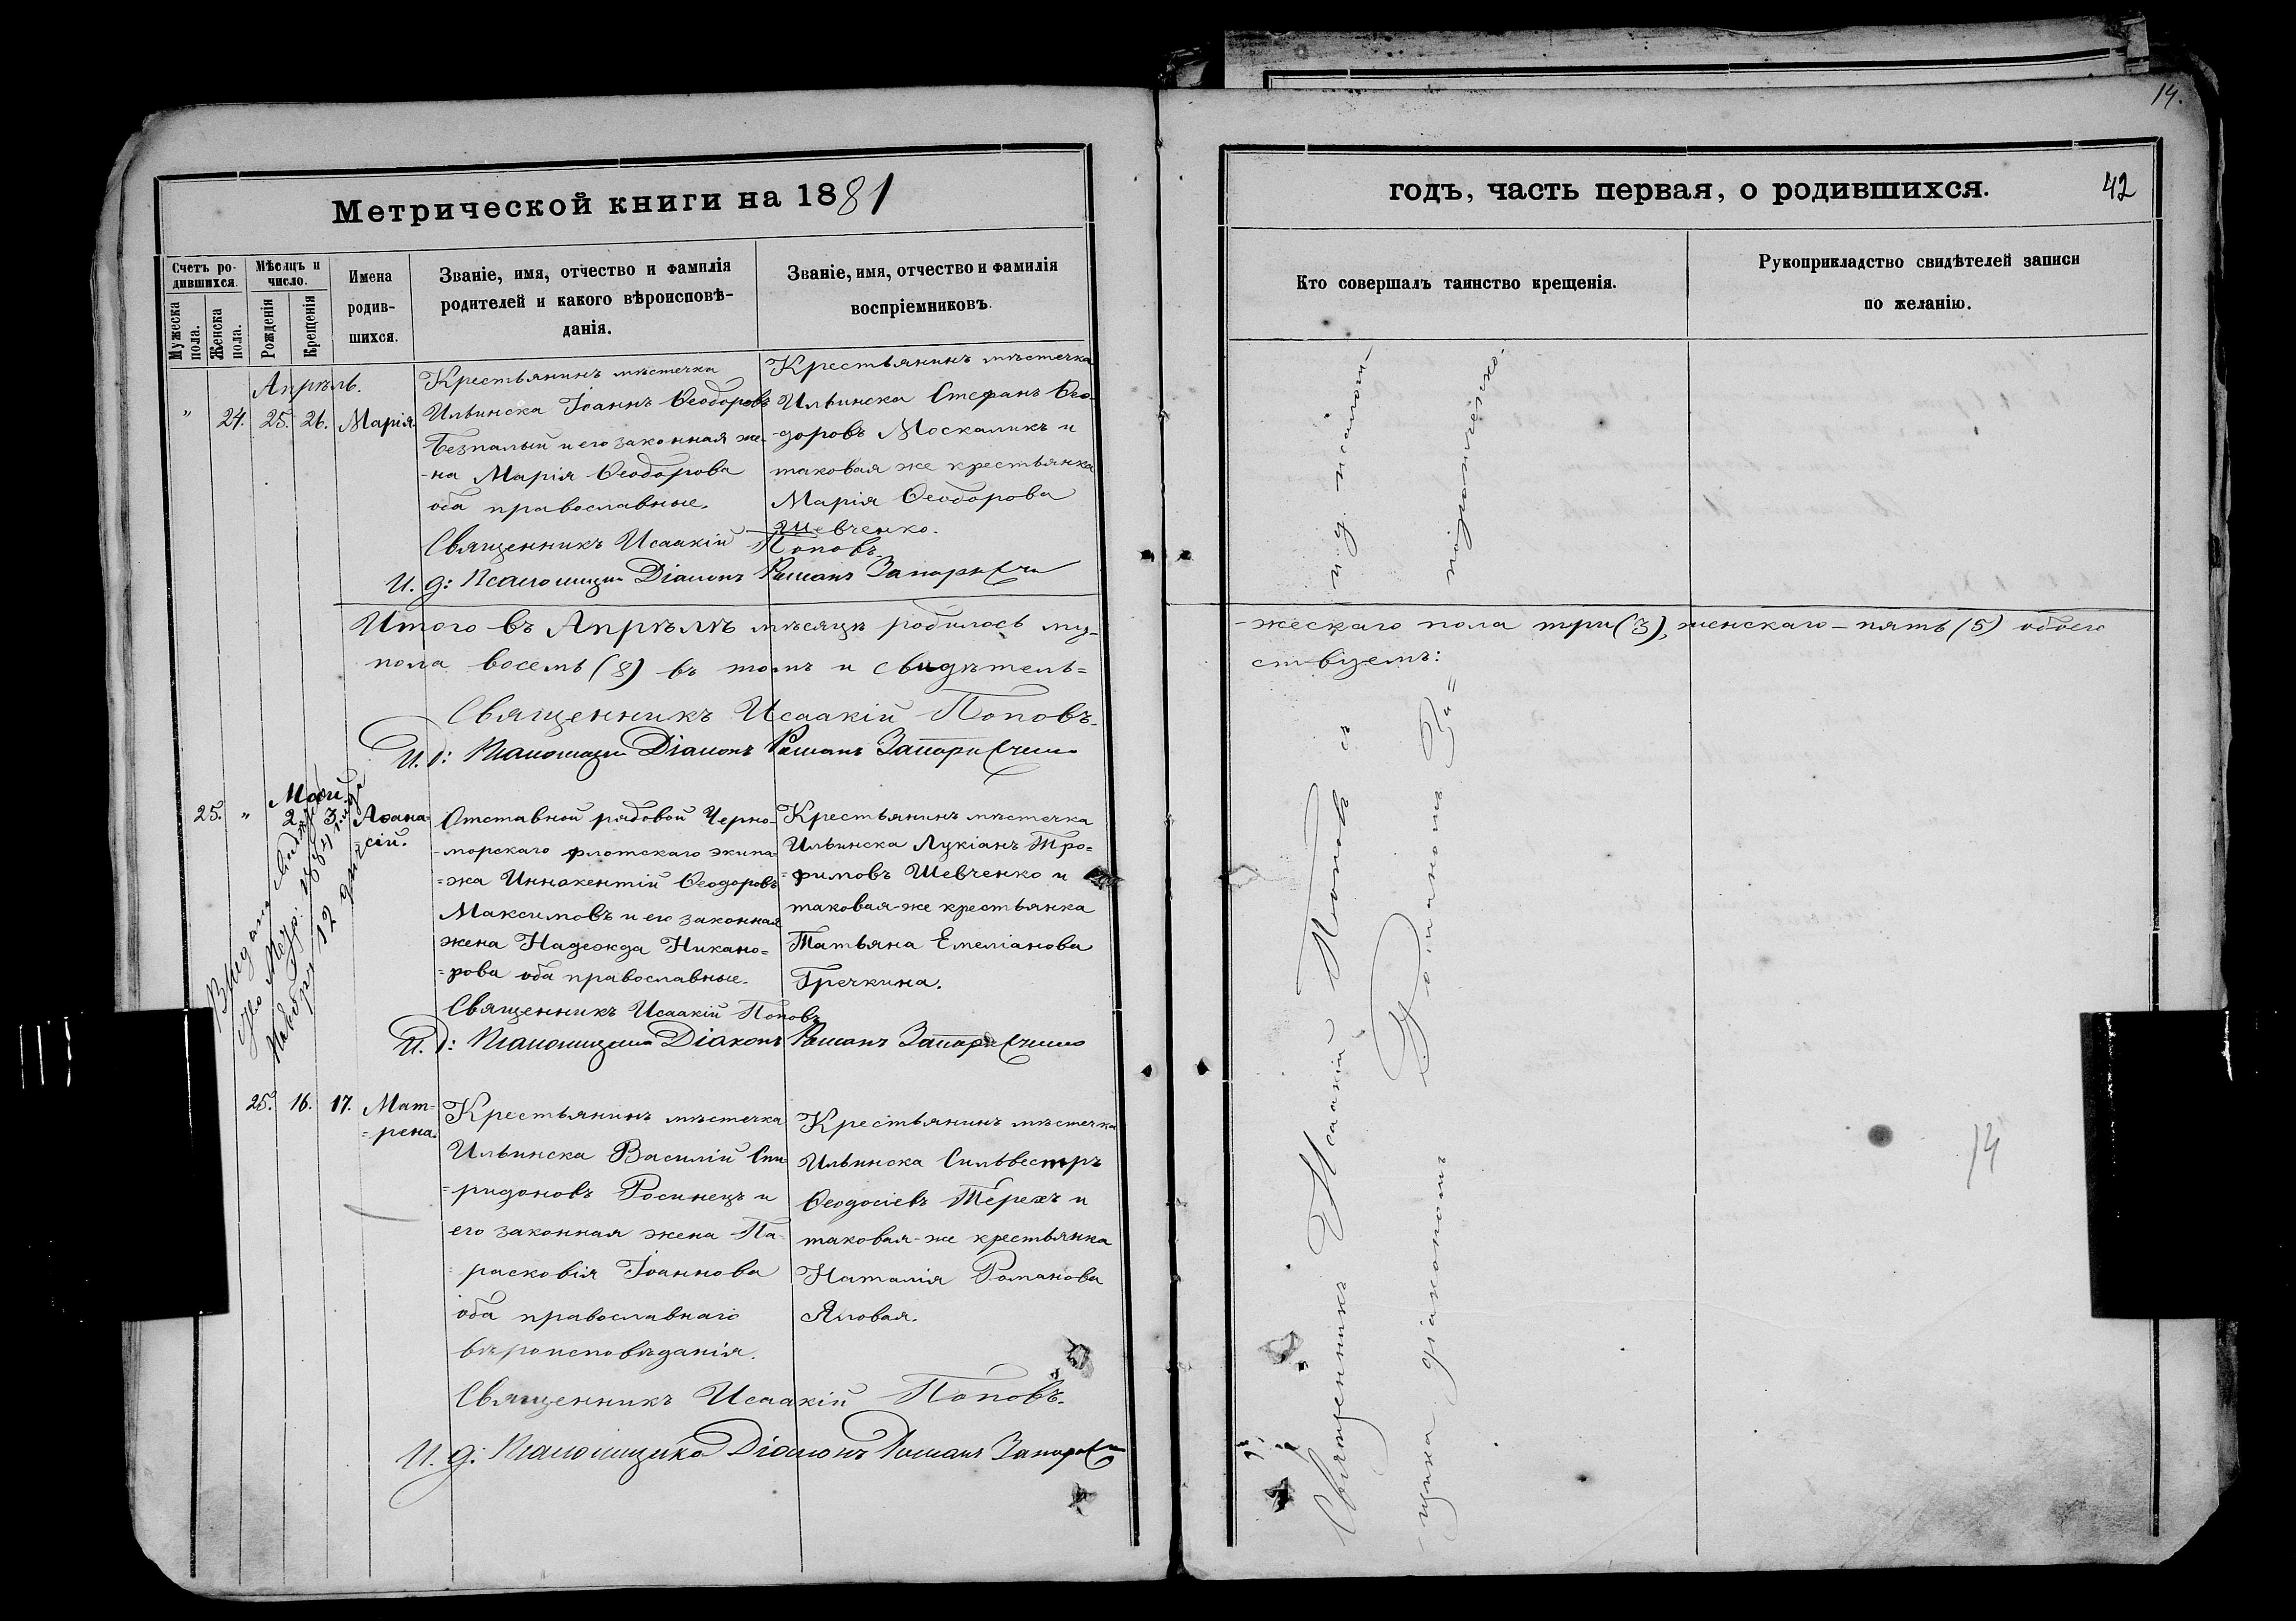 14.
Метрической книги на 1881
годъ, часть первая, о родившихся.
42
Счетъ ро-
дившихся.
Мужеска
пола.
Женска
пола.
Мѣсяцъ и
число.
Рожденія
Крещенія
Имена
родив-
шихся.
Званіе, имя, отчество и фамилія
родителей и какого вѣроисповѣ-
данія.
Званіе, имя, отчество и фамилія
воспріемниковъ.
Кто совершалъ таинство крещенія.
Рукоприкладство свидѣтелей записи
по желанію.
Апрѣль.
" 24. 25. 26. Марія.
Крестьянинъ мѣстечка
Ильинска Іоаннъ Ѳеодоровъ
Безпалый и его законная же-
-на Марія Ѳеодорова
оба православные.
Крестьянинъ мѣстечка
Ильинска Стефанъ Ѳео-
-доровъ Москаликъ и
таковая же крестьянка
Марія Ѳеодорова
Шевченко.
Священникъ Исаакій Поповъ.
И. д: Псаломщика Діаконъ Романъ
Итого въ Апрѣлѣ мѣсяцѣ родилось му-
-жескаго пола три (3), женскаго – пять (5) обоего
пола восемь (8) въ томъ и свидѣтель=
ствуемъ:
Священникъ Исаакій Поповъ.
И. д: Псаломщика Діаконъ Романъ
Май
25. " 2. 3. Аѳана=
=сій.
Отставной рядовой Черно-
-морскаго флотскаго экипа=
=жа Иннокентій Ѳеодоровъ
Максимовъ и его законная
жена Надежда Никано=
=рова оба православные.
Крестьянинъ мѣстечка
Ильинска Лукіанъ Тро=
=фимовъ Шевченко и
таковая-же крестьянка
Татьяна Емеліанова
Гречкина.
Священникъ Исаакій Поповъ
И. д: Псаломщика Діаконъ Романъ
25. 16. 17. Мат=
=рена.
Крестьянинъ мѣстечка
Ильинска Василій Спи=
=ридоновъ Росинецъ и
его законная жена Па=
=расковія Іоаннова
оба православнаго
вѣроисповѣданія.
Крестьянинъ мѣстечка
Ильинска Сильвестръ
Ѳеодосіевъ Терехъ и
таковая-же крестьянка
Наталія Романова
Яловая.
Священникъ Исаакій Поповъ.
И. д: Псаломщика Діаконъ Романъ
Священникъ Исаакій Поповъ съ и. д. псалом-
-щика діакономъ Романомъ
14